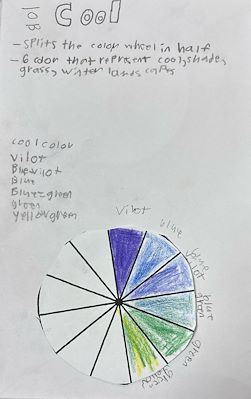 10B
Cool
- splits the color wheel in half
- 6 color that represent cool, shade,
grass, winter lands capes
cool color
Vilot
Blue vilot
Blue
Blue-green
green
yellow green
Vilot
blue
blue
vilot
blue
green
green
green
yellow